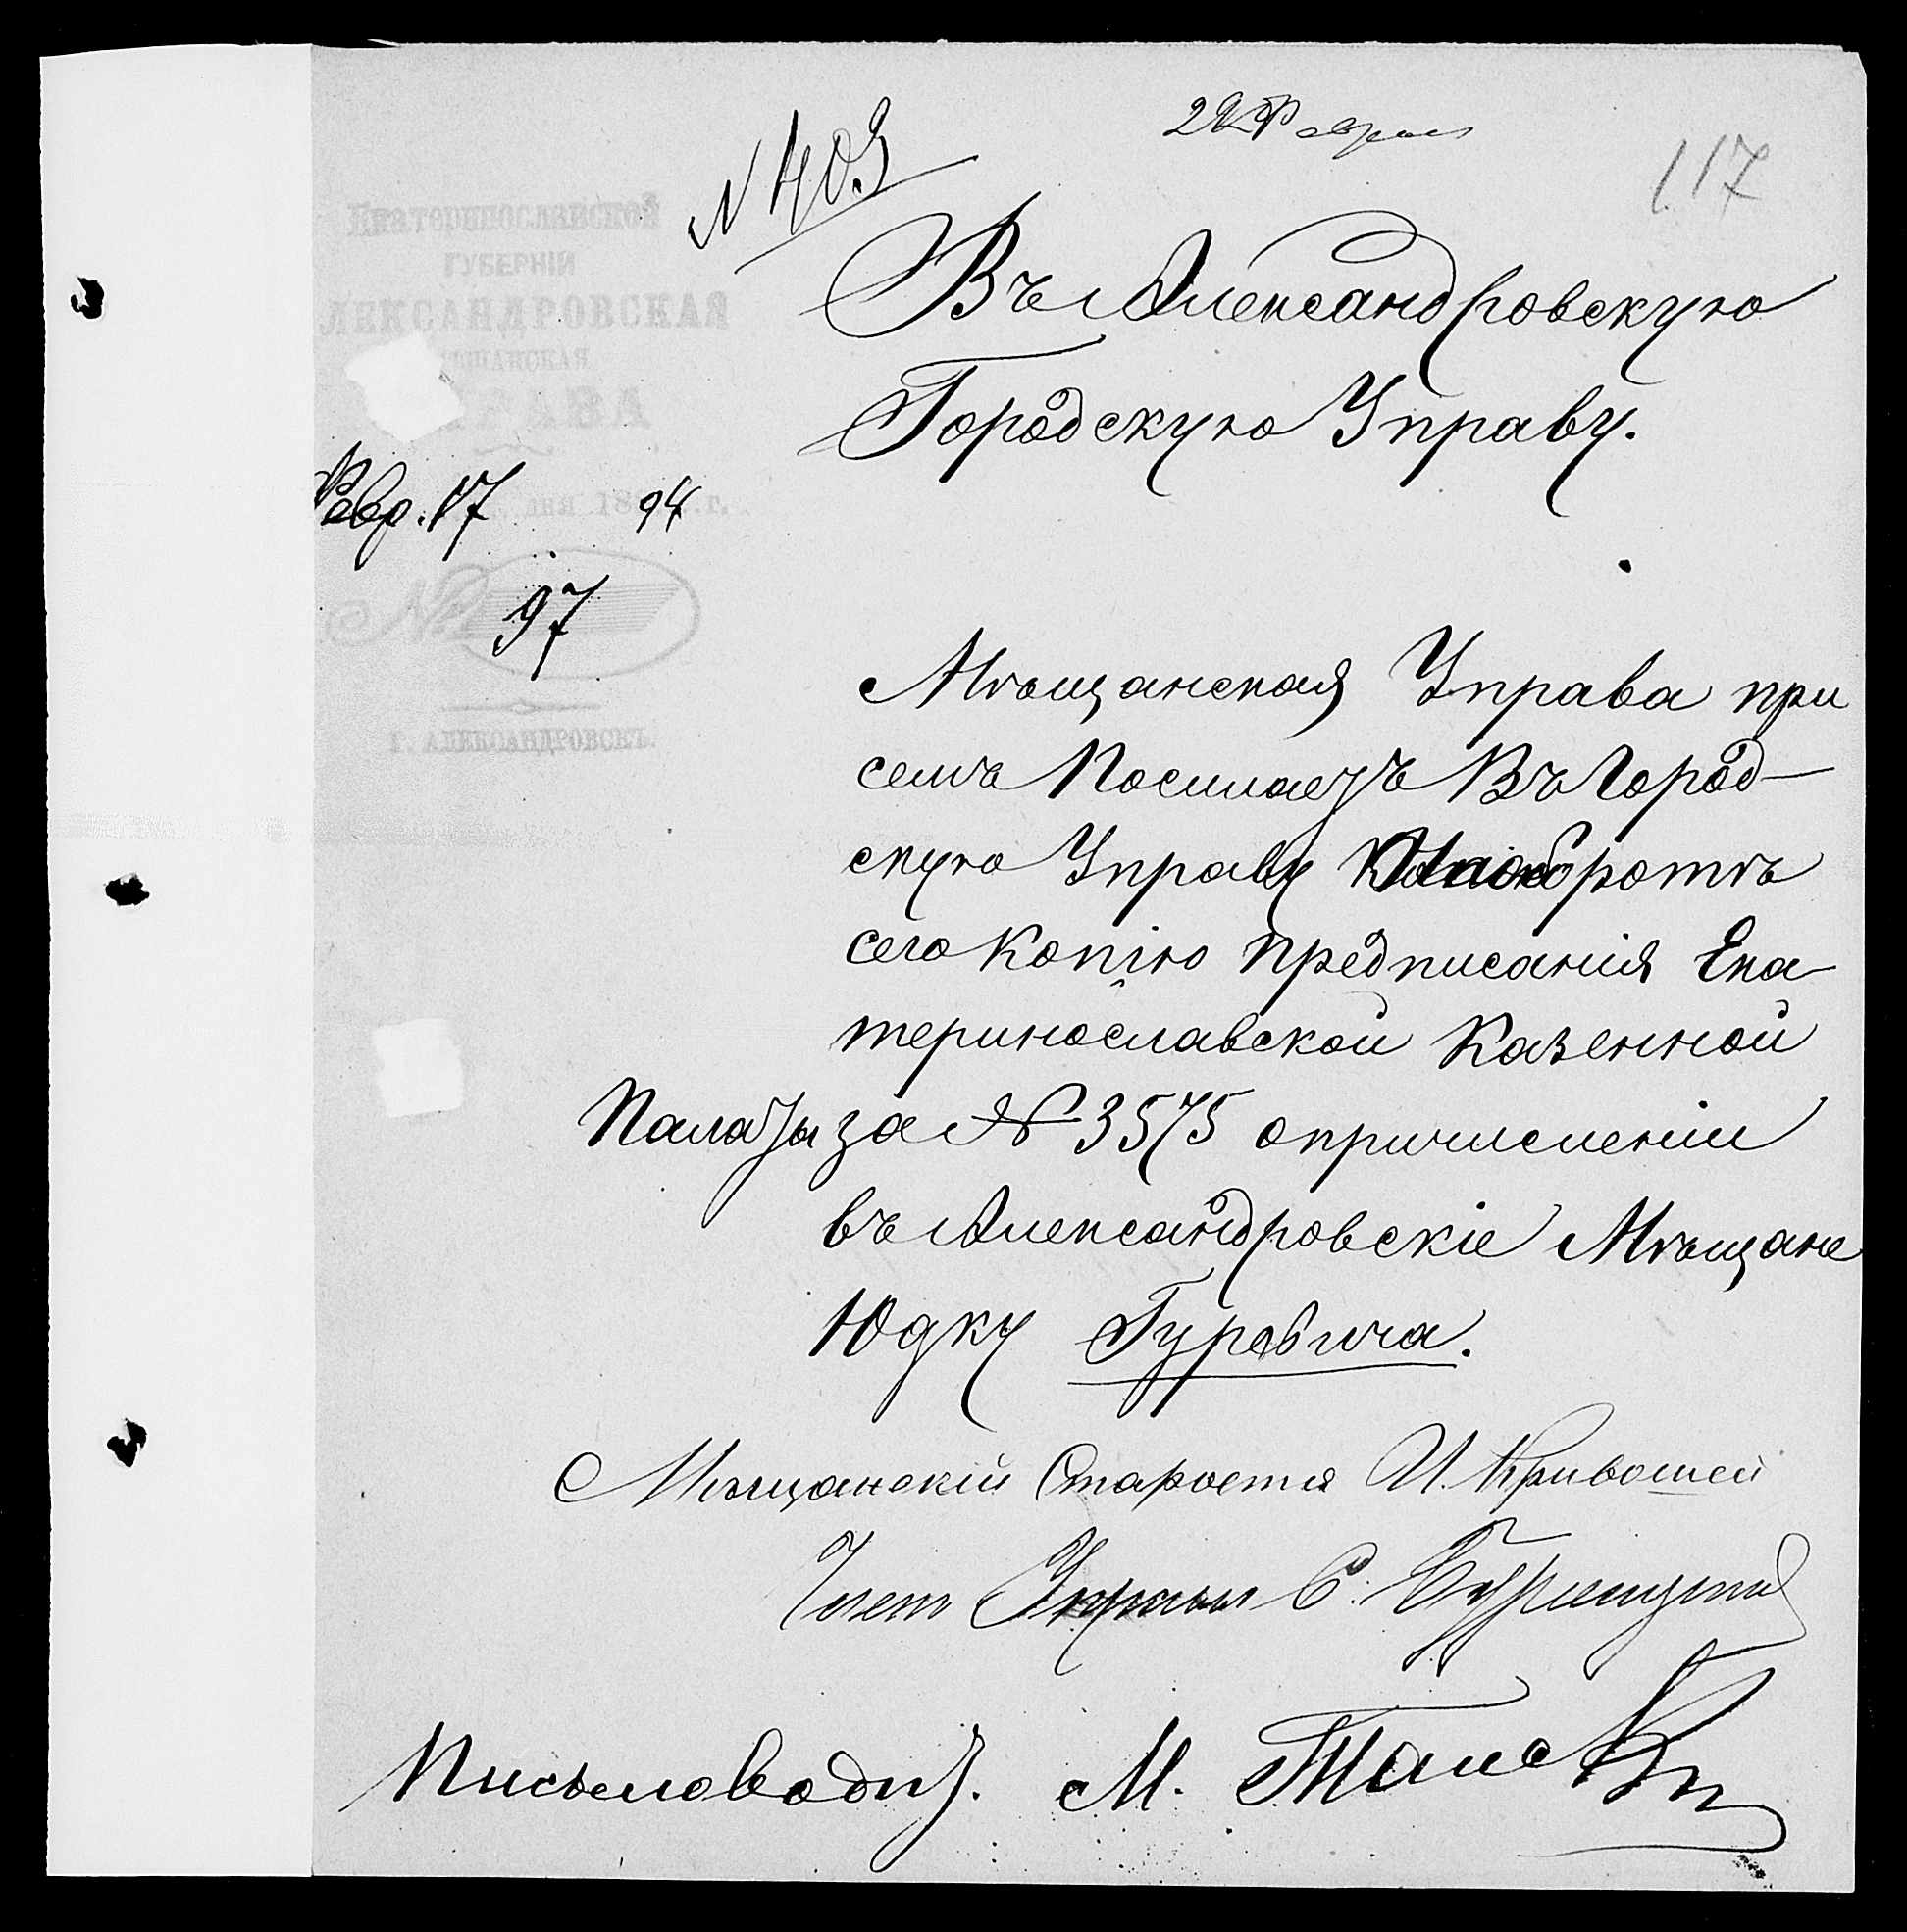 Февраля
117
N 403
Екатеринославской
ГУБЕРНІИ
АЛЕКСАНДРОВСКАЯ
МѢЩАНСКАЯ
УПРАВА
Февр. 17 дня 1894 г.
№ 97
Г. АЛЕКСАНДРОВСКЪ.
Въ Александровскую
Городскую Управу.
Мѣщанская Управа при
семъ Посилаетъ Въ Город-
скую Управу оборотѣ
сего Копію предписанія Ека-
теринославской Казенной
Палаты за № 3575 о причисленіи
въ Александровскіе Мѣщане
Юдку Гуревича.
Мѣщанскій Староста И. Кривошей
Членъ Управы С.
Письмоводит. М.